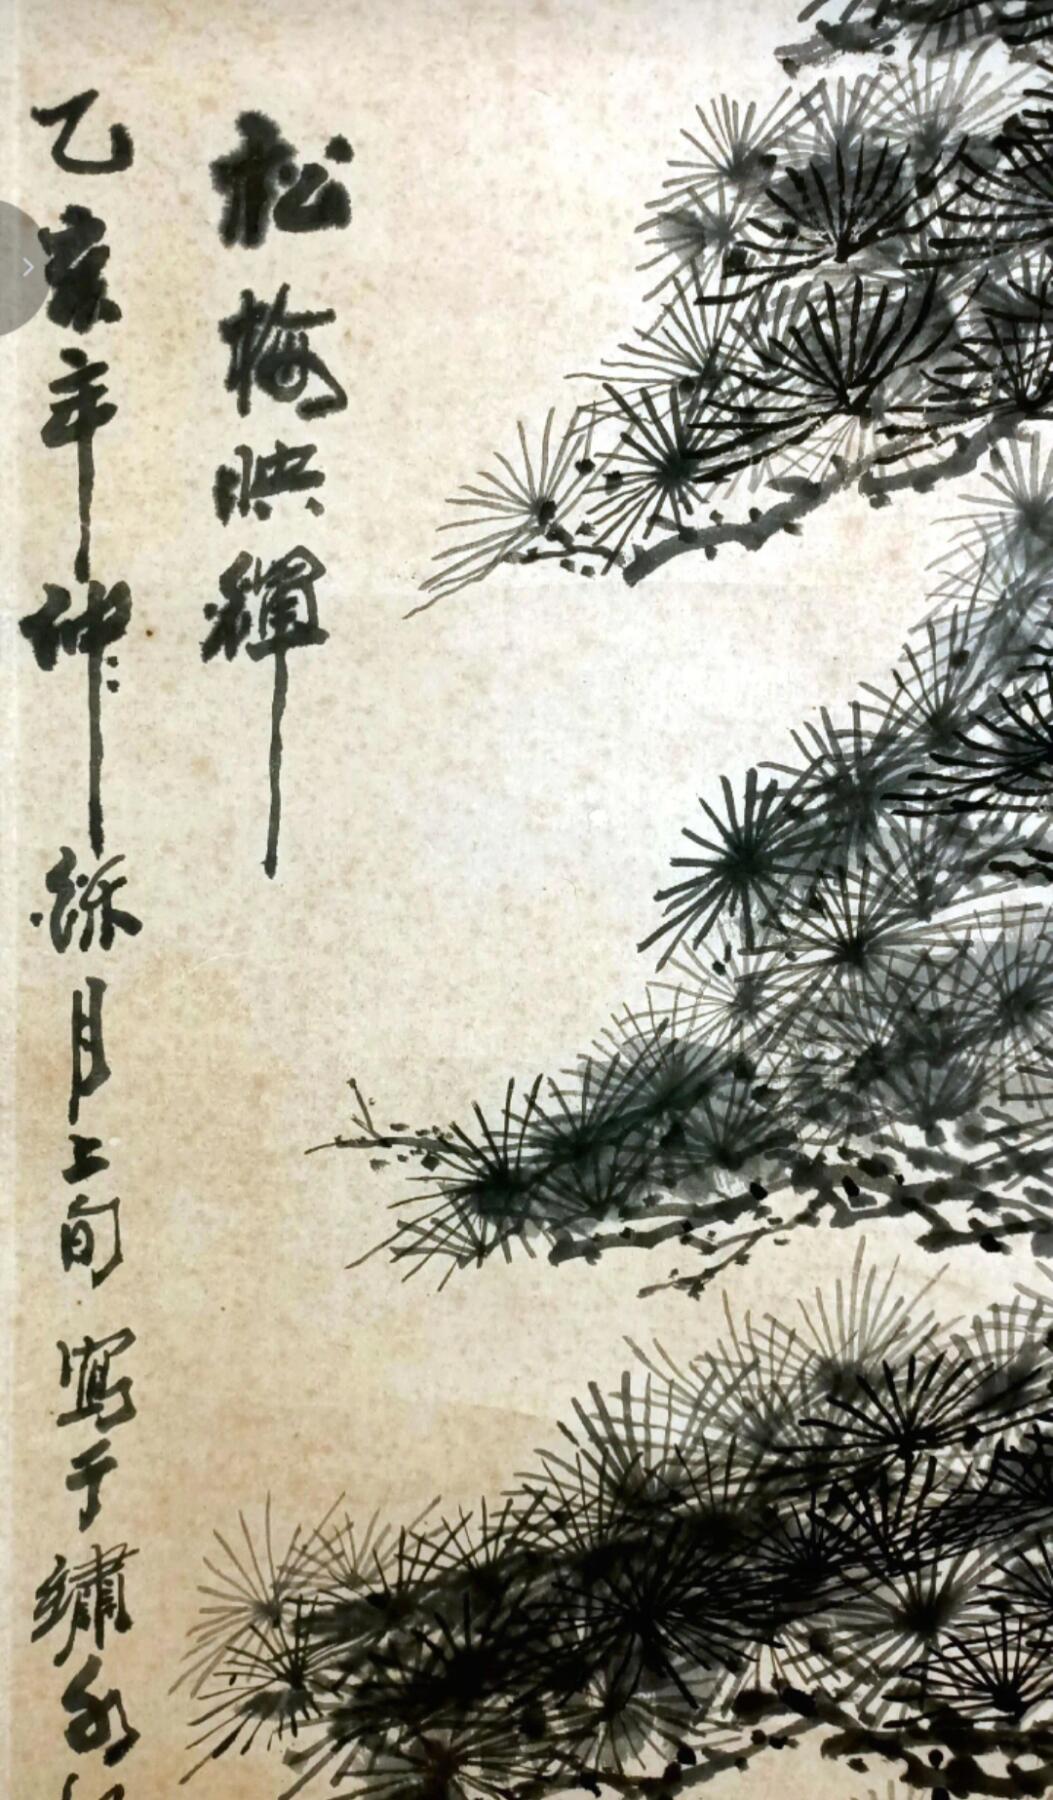 松梅映輝
乙亥年仲月上旬寫于繡水